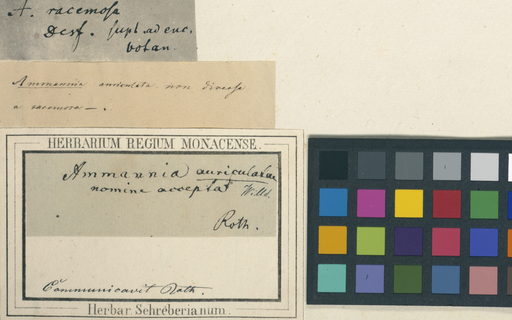 A. racemosa
Desf. supl ad enc.
botan.
Ammannia auriculata non diversa
a racemosa —.
HERBARIUM REGIUM MONACENSE.
Ammannia auricularae
nomine acceptat Willd.
Roth.
Communicavit Roth.
Herbar. Schreberianum.